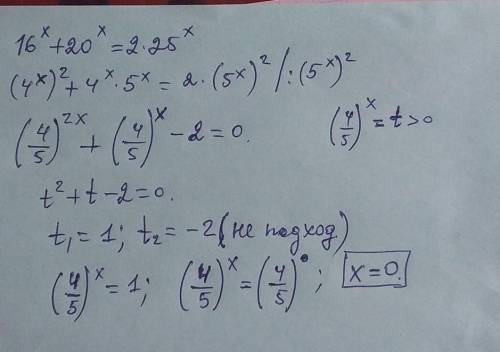 16^x + 20^x = 2·25^x
(4^x)^2 + 4^x·5^x = 2·(5^x)^2 /:(5^x)^2
(4/5)^2x + (4/5)^x - 2 = 0. (4/5)^x = t > 0
t^2 + t - 2 = 0.
t₁ = 1; t₂ = -2 (не подход)
(4/5)^x = 1; (4/5)^x = (4/5)^0; x = 0.